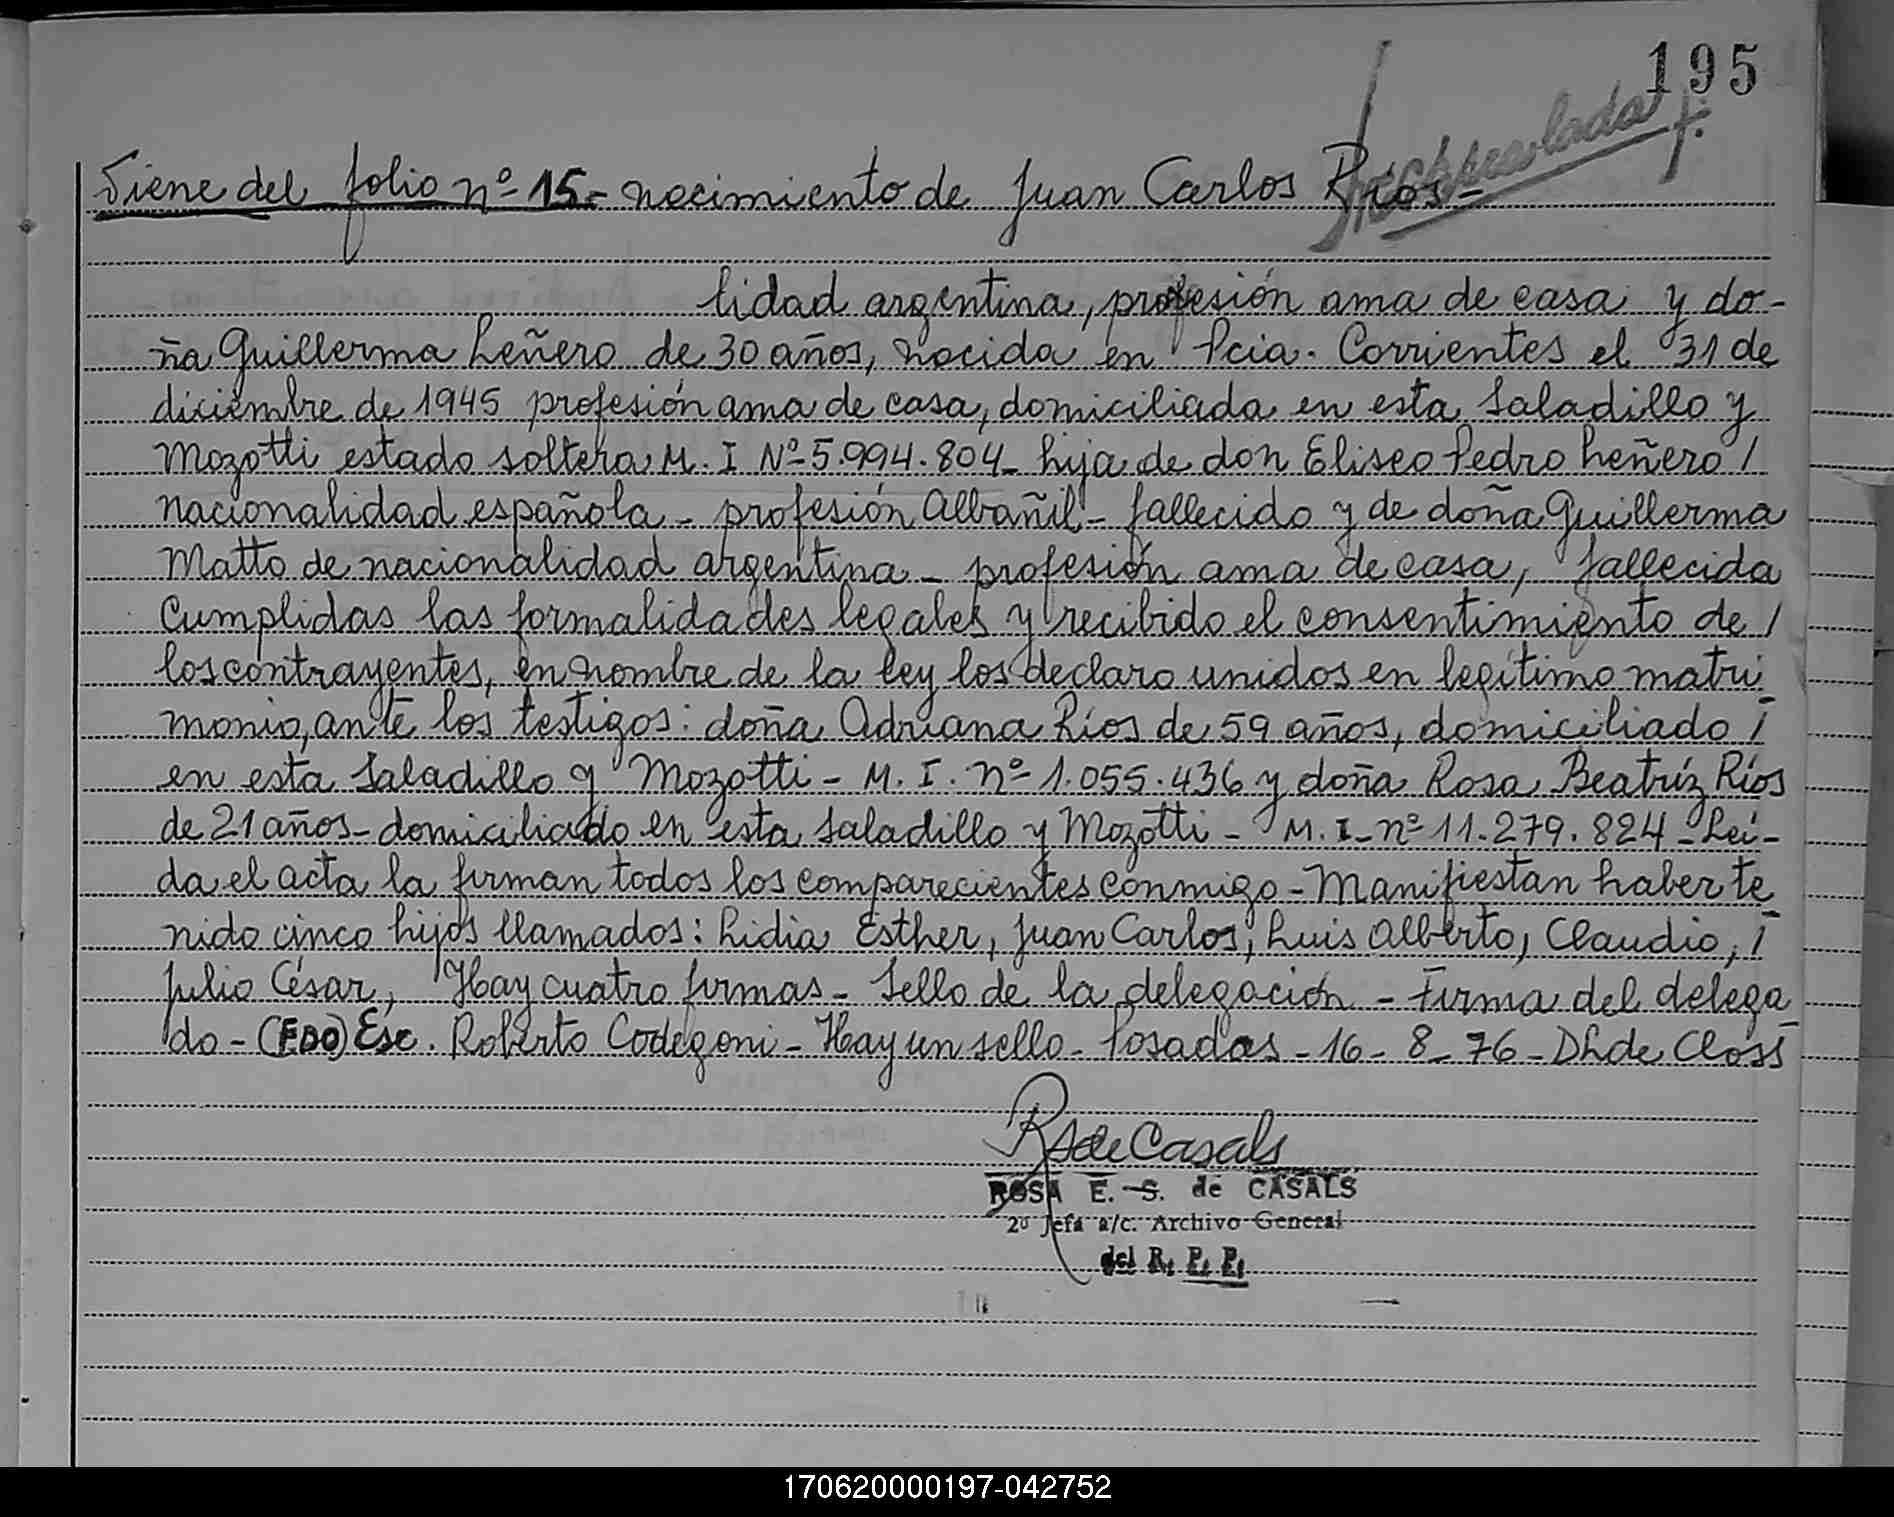 195
Viene del folio nº 15- nacimiento de Juan Carlos Ríos-
lidad argentina, profesión ama de casa y do-
ña Guillerma Leñero de 30 años, nacida en Pcia. Corrientes el 31 de
diciembre de 1945 profesión ama de casa, domiciliada en esta Saladillo y
Mozotti estado soltera M. I Nº 5.994.804- hija de don Eliseo Pedro Leñero /
nacionalidad española - profesión Albañil - fallecido y de doña Guillerma
Matto de nacionalidad argentina - profesión ama de casa, fallecida
Cumplidas las formalidades legales y recibido el consentimiento de /
los contrayentes, en nombre de la ley los declaro unidos en legítimo matri
monio, ante los testigos: doña Adriana Ríos de 59 años, domiciliado /
en esta Saladillo y Mozotti - M. I. nº 1.055.436 y doña Rosa Beatríz Ríos
de 21 años - domiciliado en esta Saladillo y Mozotti - M. I - nº 11.279.824 - Leí-
da el acta la firman todos los comparecientes conmigo - Manifiestan haber te
nido cinco hijos llamados: Lidia Esther, Juan Carlos, Luis Alberto, Claudio, /
Julio César, Hay cuatro firmas - Sello de la delegación - Firma del delega
do - (FDO) Esc. Roberto Codegoni - Hay un sello - Posadas - 16 - 8 - 76 - DL de Closs
RS de Casals
ROSA E. S. de CASALS
2º Jefa a/c. Archivo General
del R. P. P.
170620000197-042752